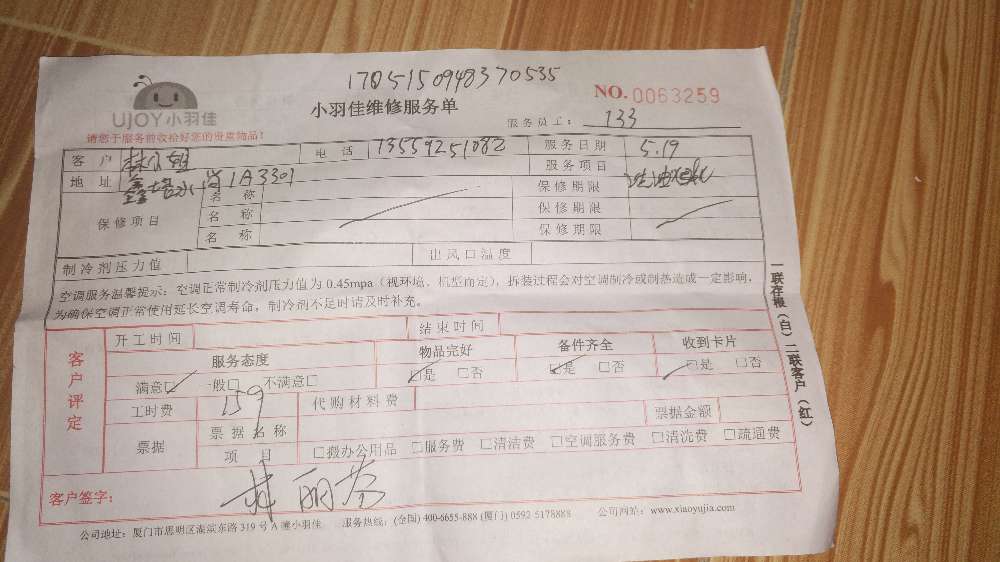 170515094837 0535
NO.0063259
UJOY小羽佳
小羽佳维修服务单
服务员工: 133
请您于服务前收拾好您的贵重物品!
客户 林小姐 电话 13559251082 服务日期 5.19
地址 鑫塔水尚1A3301 服务项目
保修项目 名称 保修期限
名称 保修期限
名称 保修期限
制冷剂压力值 出风口温度
空调服务温馨提示:空调正常制冷剂压力值为 0.45mpa(视环境、机型而定),拆装过程会对空调制冷或制热造成一定影响,
为确保空调正常使用延长空调寿命,制冷剂不足时请及时补充。
客户评定
开工时间 结束时间
服务态度 物品完好 备件齐全 收到卡片
满意☑ 一般□ 不满意□ ☑是 □否 ☑是 □否 ☑是 □否
工时费 159 代购材料费
票据 票据名称 票据金额
项目 □搬办公用品 □服务费 □清洁费 □空调服务费 □清洗费 □疏通费
客户签字: 林丽芬
公司地址:厦门市思明区湖滨东路 319 号 A 幢小羽佳 服务热线:(全国) 400-6655-888 (厦门) 0592-5178888 公司网站:www.xiaoyujia.com
一联存根(白)二联客户(红)